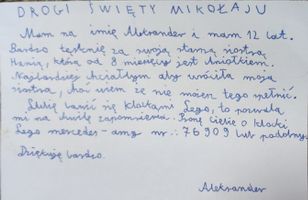 DROGI ŚWIĘTY MIKOŁAJU
Mam na imię Aleksander i mam 12 lat.
Bardzo tęsknię za swoją starszą siostrą
Hanią, która od 8 miesięcy jest Aniołkiem.
Najbardziej chciałbym aby wróciła moja
siostra, choć wiem że nie możesz tego spełnić.
Lubię bawić się klockami Lego, to pozwala
mi na chwilę zapomnienia. Proszę Ciebie o klocki
Lego mercedes-amg nr.: 76909 lub podobny.
Dziękuję bardzo.
Aleksander